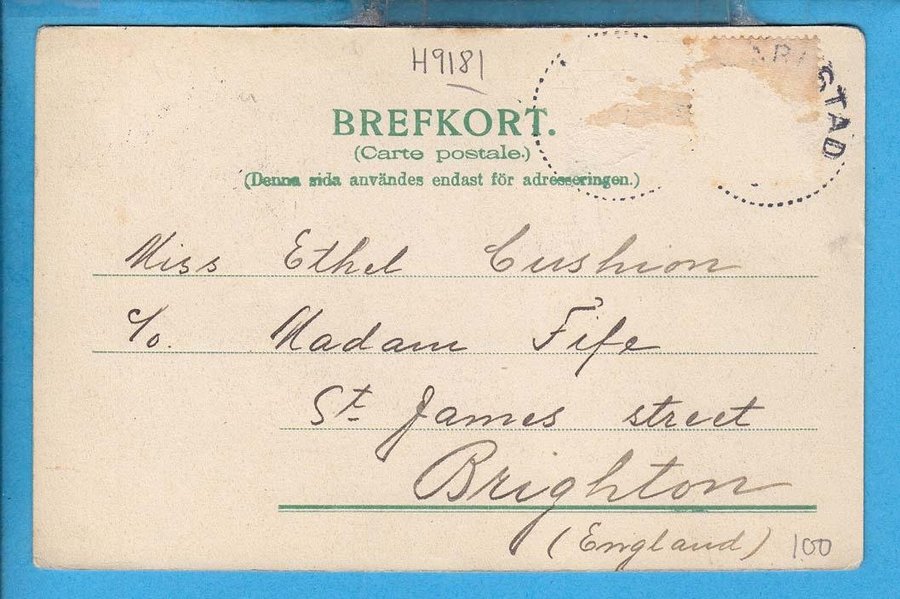 H9181
BREFKORT.
(Carte postale.)
(Denna sida användes endast för adresseringen.)
Miss Ethel Cushion
c/o. Madam Fife
St. James street
Brighton
(England)
100